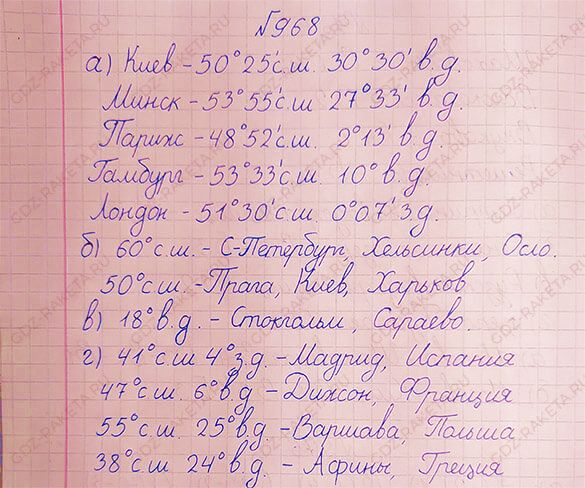 №968
а) Киев - 50°25'с.ш. 30°30' в.д.
Минск - 53°55'с.ш. 27°33' в.д.
Париж - 48°52'с.ш. 2°13' в.д.
Гамбург - 53°33'с.ш. 10° в.д.
Лондон - 51°30'с.ш 0°07' з.д.
б) 60°с.ш. - С-Петербург, Хельсинки, Осло.
50°с.ш. - Прага, Киев, Харьков
в) 18°в.д. - Стокгольм, Сараево.
г) 41°с.ш 4°з.д. - Мадрид, Испания
47°с.ш. 6°в.д - Дижон, Франция
55°с.ш. 25°в.д. - Варшава, Польша
38°с.ш 24°в.д. - Афины, Греция